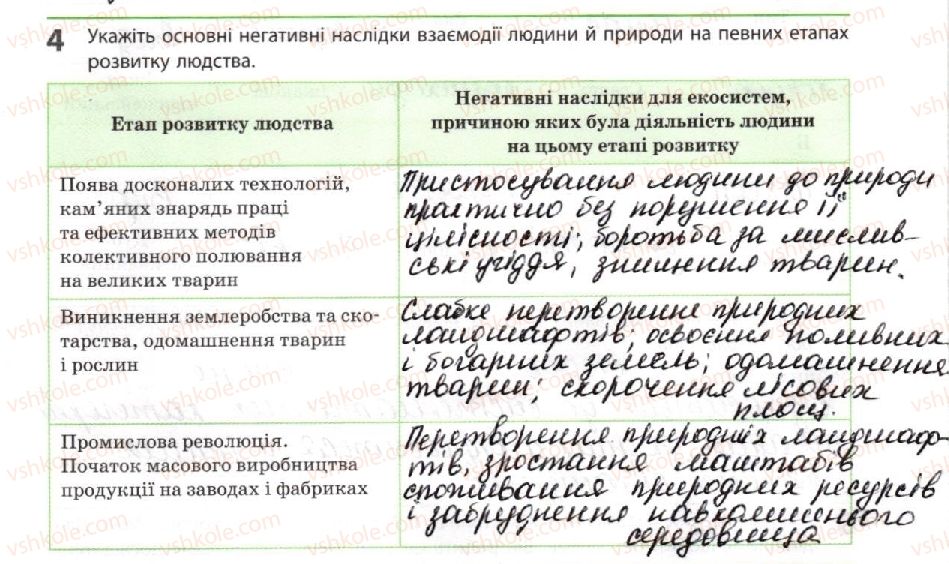 4 Укажіть основні негативні наслідки взаємодії людини й природи на певних етапах
розвитку людства.
Етап розвитку людства
Негативні наслідки для екосистем,
причиною яких була діяльність людини
на цьому етапі розвитку
Поява досконалих технологій,
кам’яних знарядь праці
та ефективних методів
колективного полювання
на великих тварин
Пристосування людини до природи
практично без порушення її
цілісності; боротьба за мислив-
ські угіддя, знищення тварин.
Виникнення землеробства та ско-
тарства, одомашнення тварин
і рослин
Слабке перетворення природних
ландшафтів; освоєння поливних
і богарних земель; одомашнення
тварин; скорочення лісових
площ.
Промислова революція.
Початок масового виробництва
продукції на заводах і фабриках
Перетворення природних ландшаф-
тів, зростання маштабів
споживання природних ресурсів
і забруднення навколишнього
середовища
vshkole.com